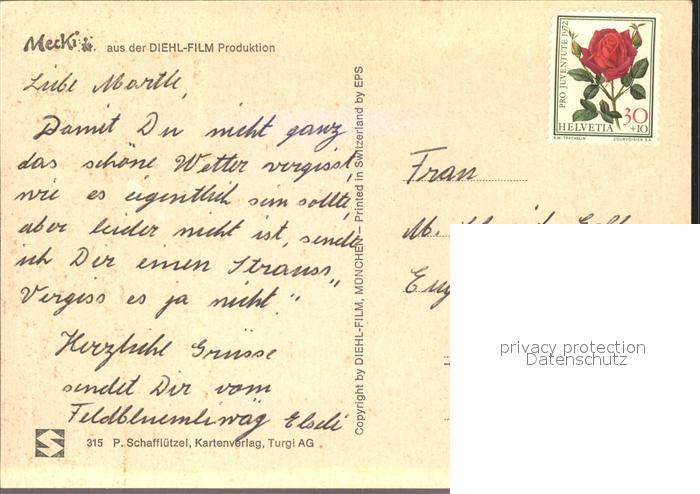 Mecki aus der DIEHL-FILM Produktion
Liebe Martli,
Damit Du nicht ganz
das schöne Wetter vergisst,
wie es eigentlich sein sollte,
aber leider nicht ist, sende
ich Dir einen Strauss „
Vergiss es ja nicht."
Herzliche Grüsse
sendet Dir vom
Feldblüemliwäg Elseli
315 P. Schafflützel, Kartenverlag, Turgi AG
Copyright by DIEHL-FILM, MÜNCHEN – Printed in Switzerland by EPS
PRO JUVENTUTE 1972
30
+10
HELVETIA
COURVOISIER S.A.
Frau
M.
privacy protection
Datenschutz